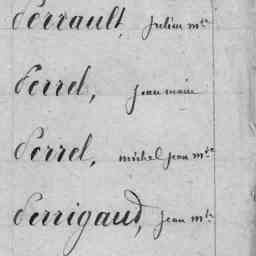 Perrault, Julien mte
Perrel, Jean marie
Perrel, michel Jean mte
Perrigaud, Jean mte